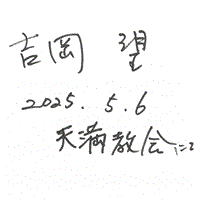 吉岡 望
2025.5.6
天満教会に